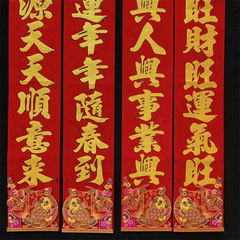 旺財旺運氣旺
興人興事業興
運年年隨春到
源天天順意来